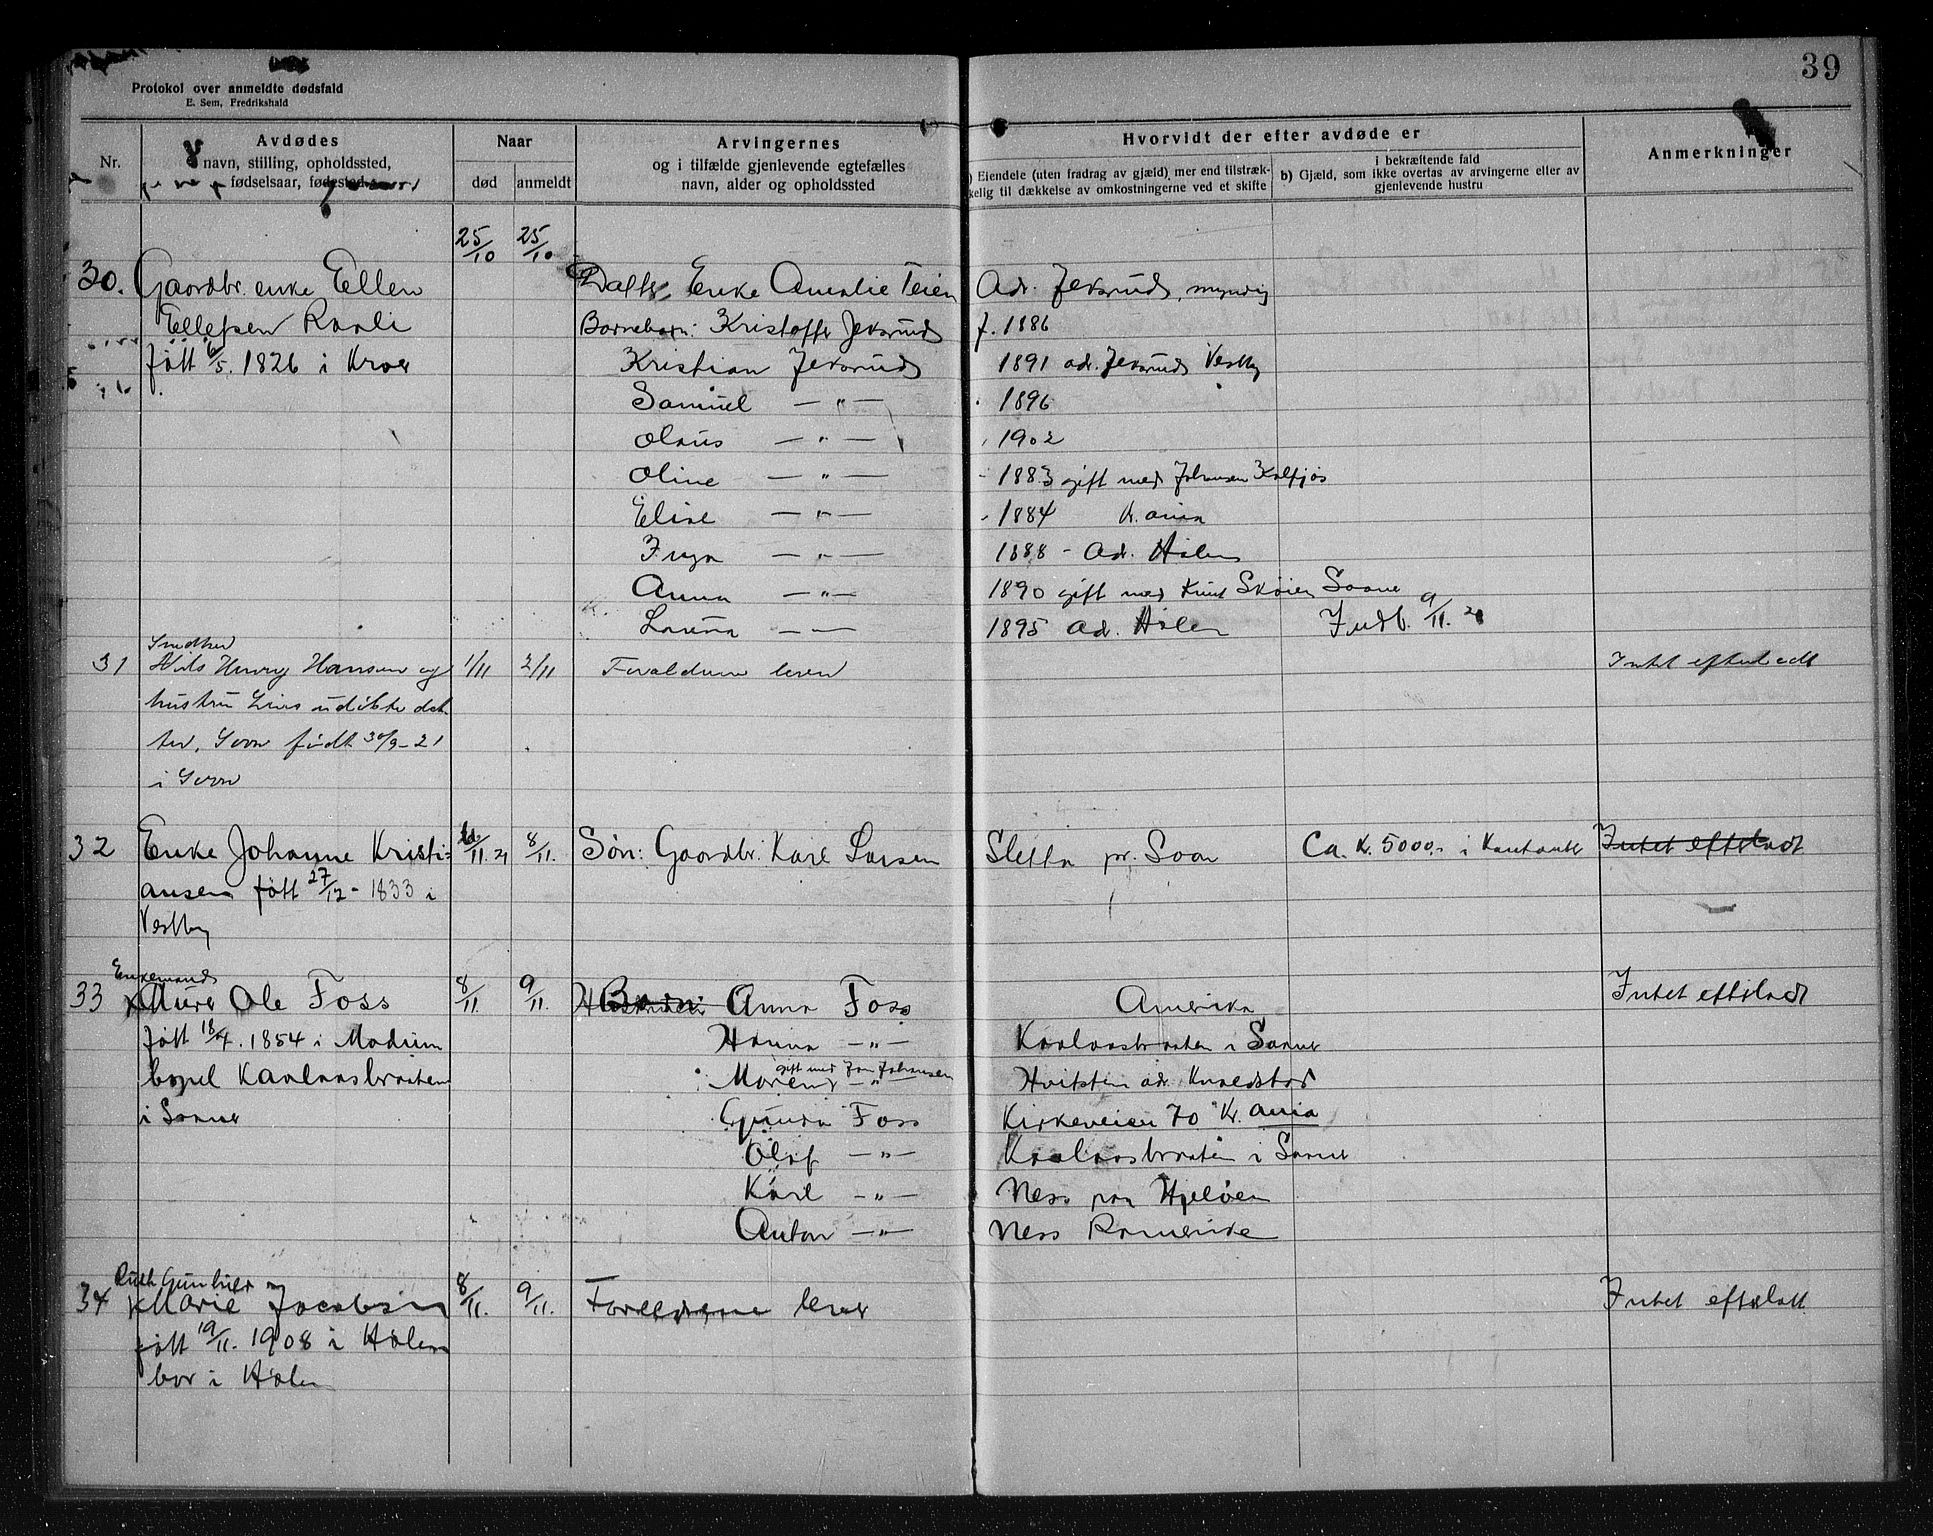 39
Protokol over anmeldte dødsfald
E. Sem, Fredrikshald
Nr.
Avdødes
navn, stilling, opholdssted,
fødselsaar, fødested
Naar
død
anmeldt
Arvingernes
og i tilfælde gjenlevende egtefælles
navn, alder og opholdssted
Hvorvidt der efter avdøde er
a) Eiendele (uten fradrag av gjæld) mer end tilstræk-
kelig til dækkelse av omkostningerne ved et skifte
i bekræftende fald
b) Gjæld, som ikke overtas av arvingerne eller av
gjenlevende hustru
Anmerkninger
25/10 25/10
30. Gaardbr. enke Ellen Datter Enke Amalie Teien Adr. Jeksrud, myndig
Ellefsen Barnebarn: Kristoffer Jeksrud f. 1886
født 6/5. 1826 i Kroer Kristian Jeksrud 1891 adr. Jeksrud Vestby
Samuel — " — 1896
Olaus — " — 1902
Oline — " — 1883 gift med Johansen
Elise — " — 1884 Kr.ania
— " — 1888 - Adr. Hølen
Anna — " — 1890 gift med Knut Skøien Saaner
— — 1895 Adr. Hølen Indb. 9/11. 21
31 Nils Henry Hansen og 1/11 2/11 Forældrene lever Intet efterladt
hustru udøbte dat
ter, Soon født 30/9-21
i Soon
32 Enke Johanne Kristi- 6/11. 21 8/11. Søn: Gaardbr. Karl Larsen Sletta pr. Soon Ca. K. 5000,- i Kontanter Intet efterladt
ansen født 27/12 - 1833 i
Vestby
Enkemand
33 Murer Ole Foss 8/11. 9/11. Børn: Anna Foss Amerika Intet efterladt
født 18/4. 1854 i Modum Hanna — " — i Saaner
bopel gift med Johansen
i Saaner Hvitsten adr.
Foss Kirkeveien 70 Kr. ania
Olaf — " — i Saaner
Karl — " — Ness paa Hjeløen
Anton — " — Ness Romerike
Ruth Gunhild
34 Marie Jacobsen 8/11. 9/11. Forældrene lever Intet efterladt
født 19/11. 1908 i Hølen
bor i Hølen